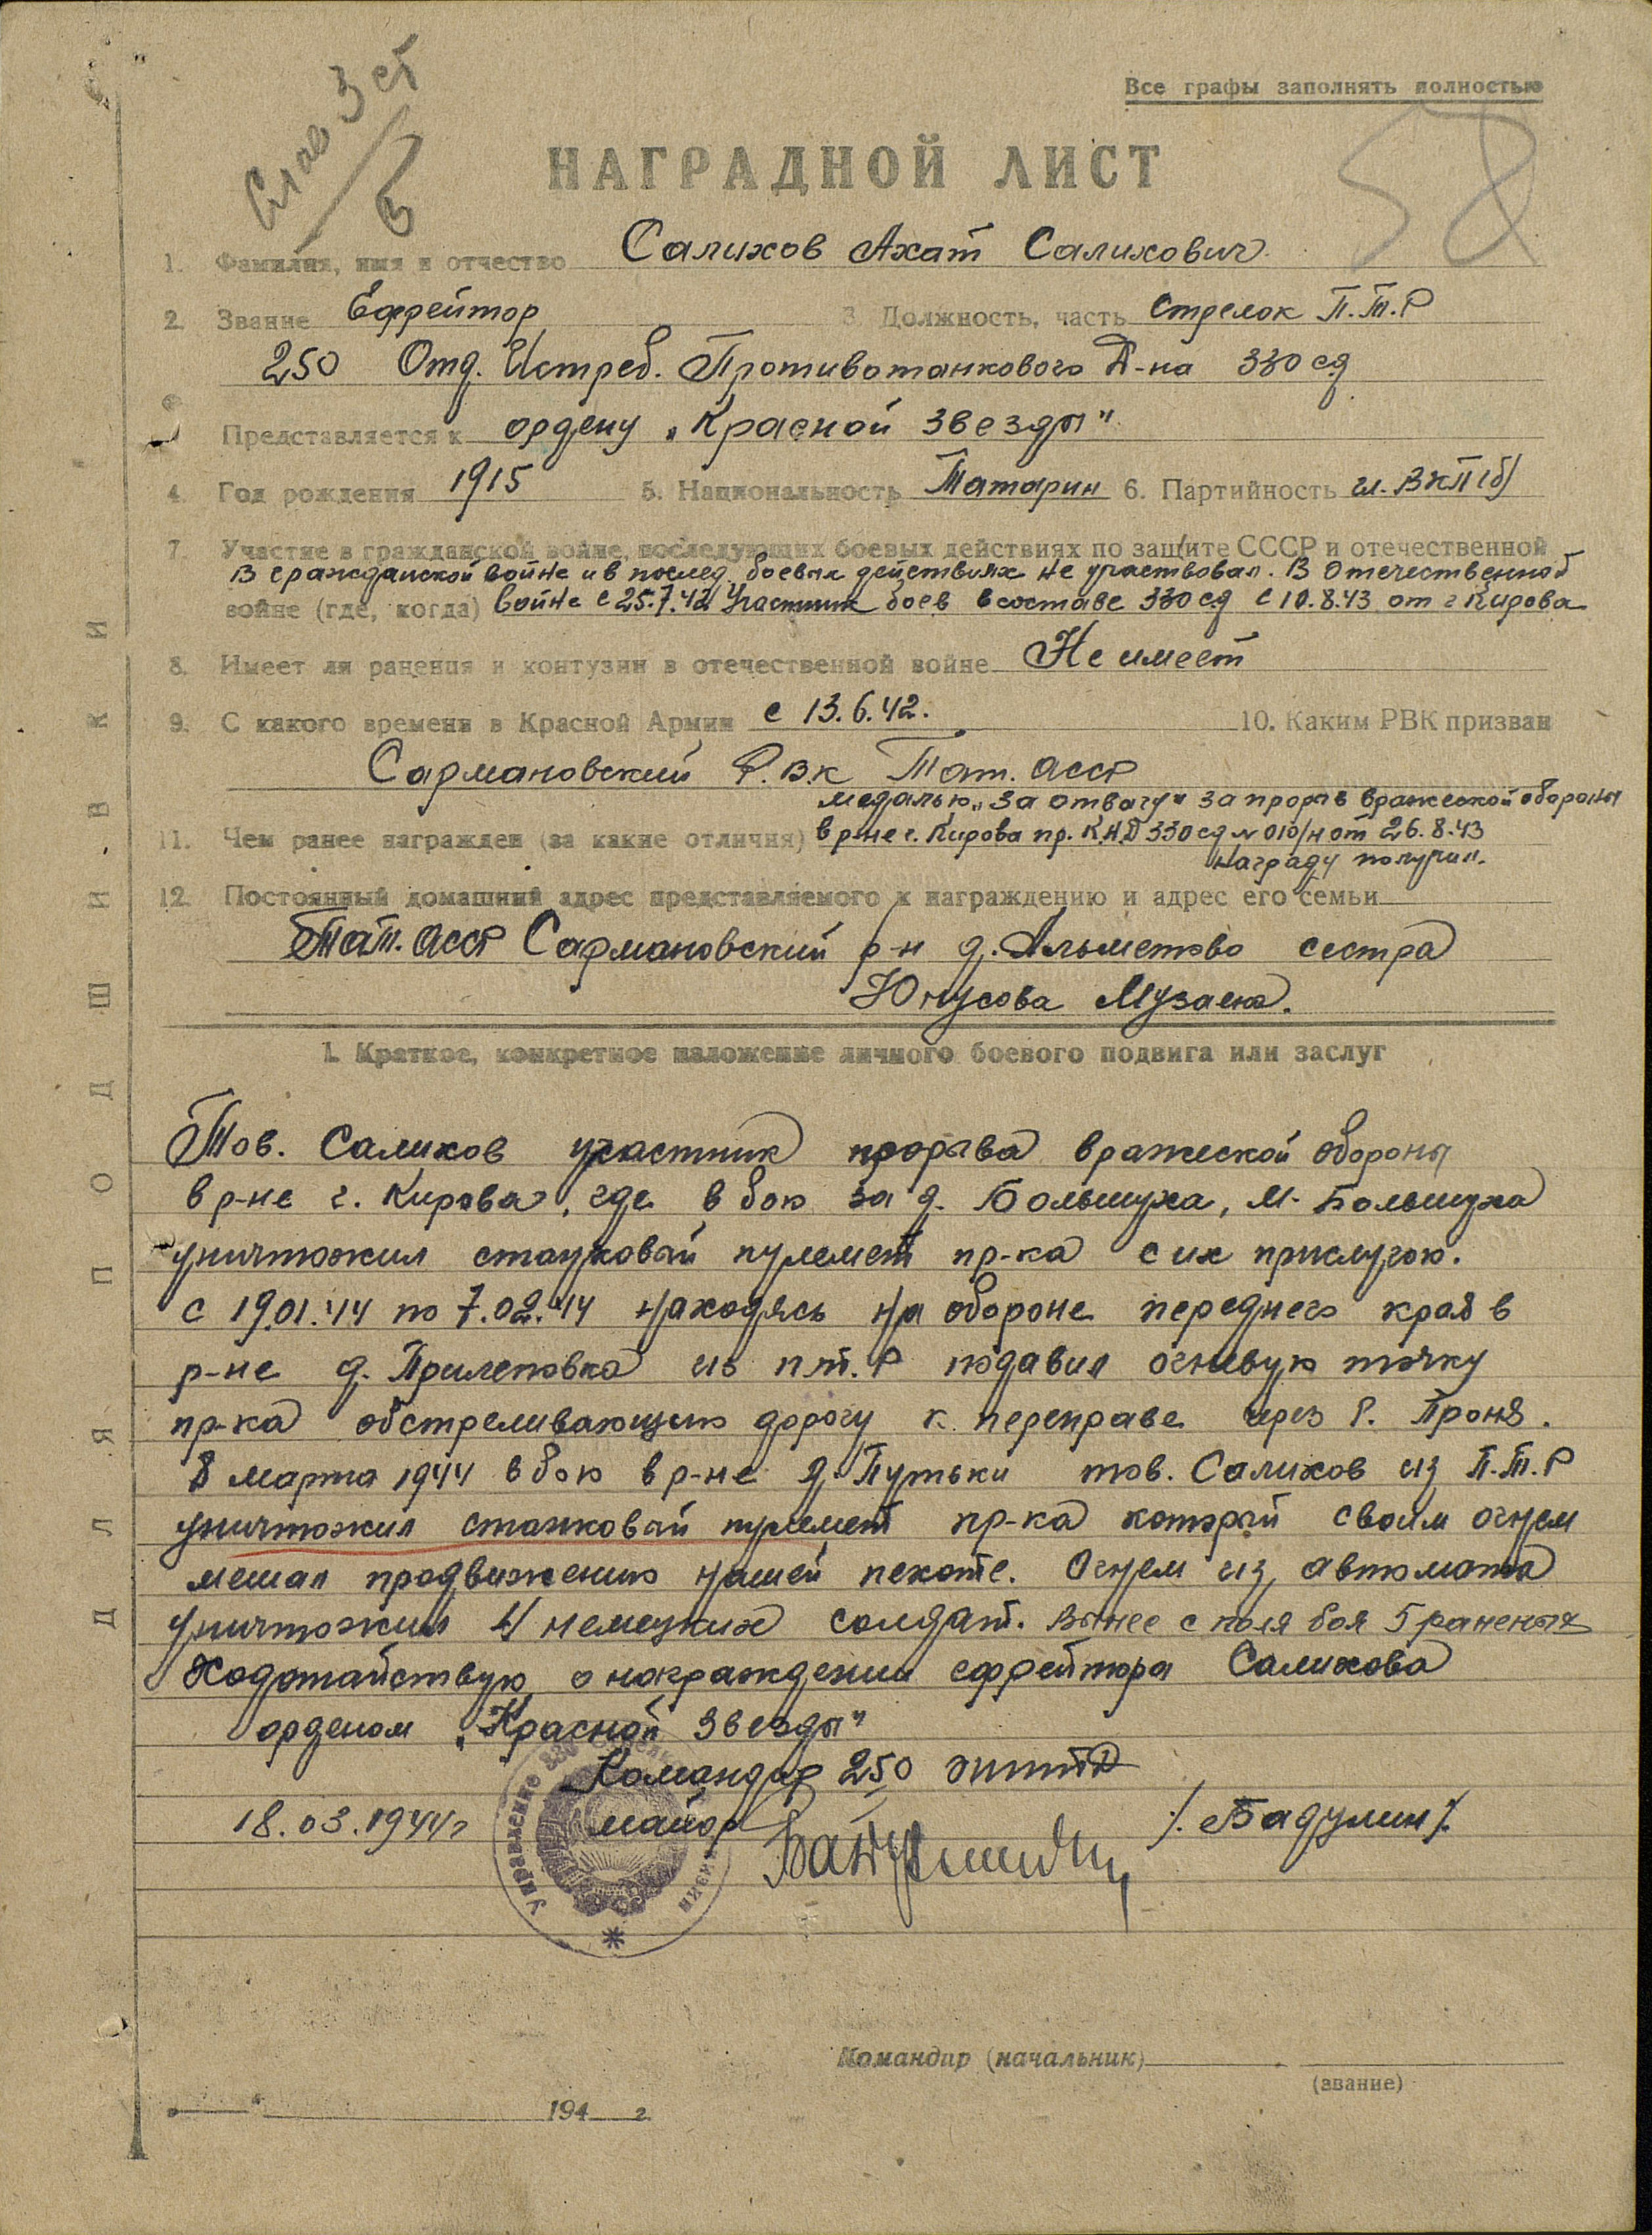 Слав 3 ст
Все графы заполнять полностью
58
НАГРАДНОЙ ЛИСТ
1. Фамилия, имя и отчество Салихов Ахат Салихович
2. Звание Ефрейтор 3. Должность, часть Стрелок П.Т.Р
250 Отд. Истреб. Противотанкового Д-на 330 сд
Представляется к ордену „Красной Звезды"
4. Год рождения 1915 5. Национальность Татарин 6. Партийность чл. ВКП(б)
7. Участие в гражданской войне, последующих боевых действиях по защите СССР и отечественной
В гражданской войне и в послед. боевых действиях не участвовал. В Отечественной
войне (где, когда) войне с 25.7.42 Участник боев в составе 330 сд с 10.8.43 от г Кирова
8. Имеет ли ранения и контузии в отечественной войне Не имеет
9. С какого времени в Красной Армии с 13.6.42. 10. Каким РВК призван
Сармановский Р.В.К Тат. АССР
медалью „За отвагу" за прорыв вражеской обороны
11. Чем ранее награжден (за какие отличия) в р-не г. Кирова пр. К.А.Д 330 сд № 010/н от 26.8.43
Награду получил.
12. Постоянный домашний адрес представляемого к награждению и адрес его семьи
Тат. АССР Сармановский р-н д. Альметово сестра
Юнусова
1. Краткое, конкретное изложение личного боевого подвига или заслуг
Тов. Салихов участник прорыва вражеской обороны
в р-не г. Кирова, где в бою за д. Большуха, М. Большуха
уничтожил станковый пулемет пр-ка с их прислугою.
с 19.01.44 по 7.02.44 находясь на обороне переднего края в
р-не д. Прилеповка из п.т.Р подавил огневую точку
пр-ка обстреливающую дорогу к переправе через р. Проня.
8 марта 1944 в бою в р-не д. Путьки тов. Салихов из П.Т.Р
уничтожил станковый пулемет пр-ка который своим огнем
мешал продвижению нашей пехоте. Огнем из автомата
уничтожил 4 немецких солдат. Вынес с поля боя 5 раненых
Ходотайствую о награждении ефрейтора Салихова
орденом „Красной Звезды"
Командир 250 оиптД
18.03.1944г майор /. Бадулин/.
Управление 330
Командир (начальник)
(звание)
„ " 194 г.
ДЛЯ ПОДШИВКИ